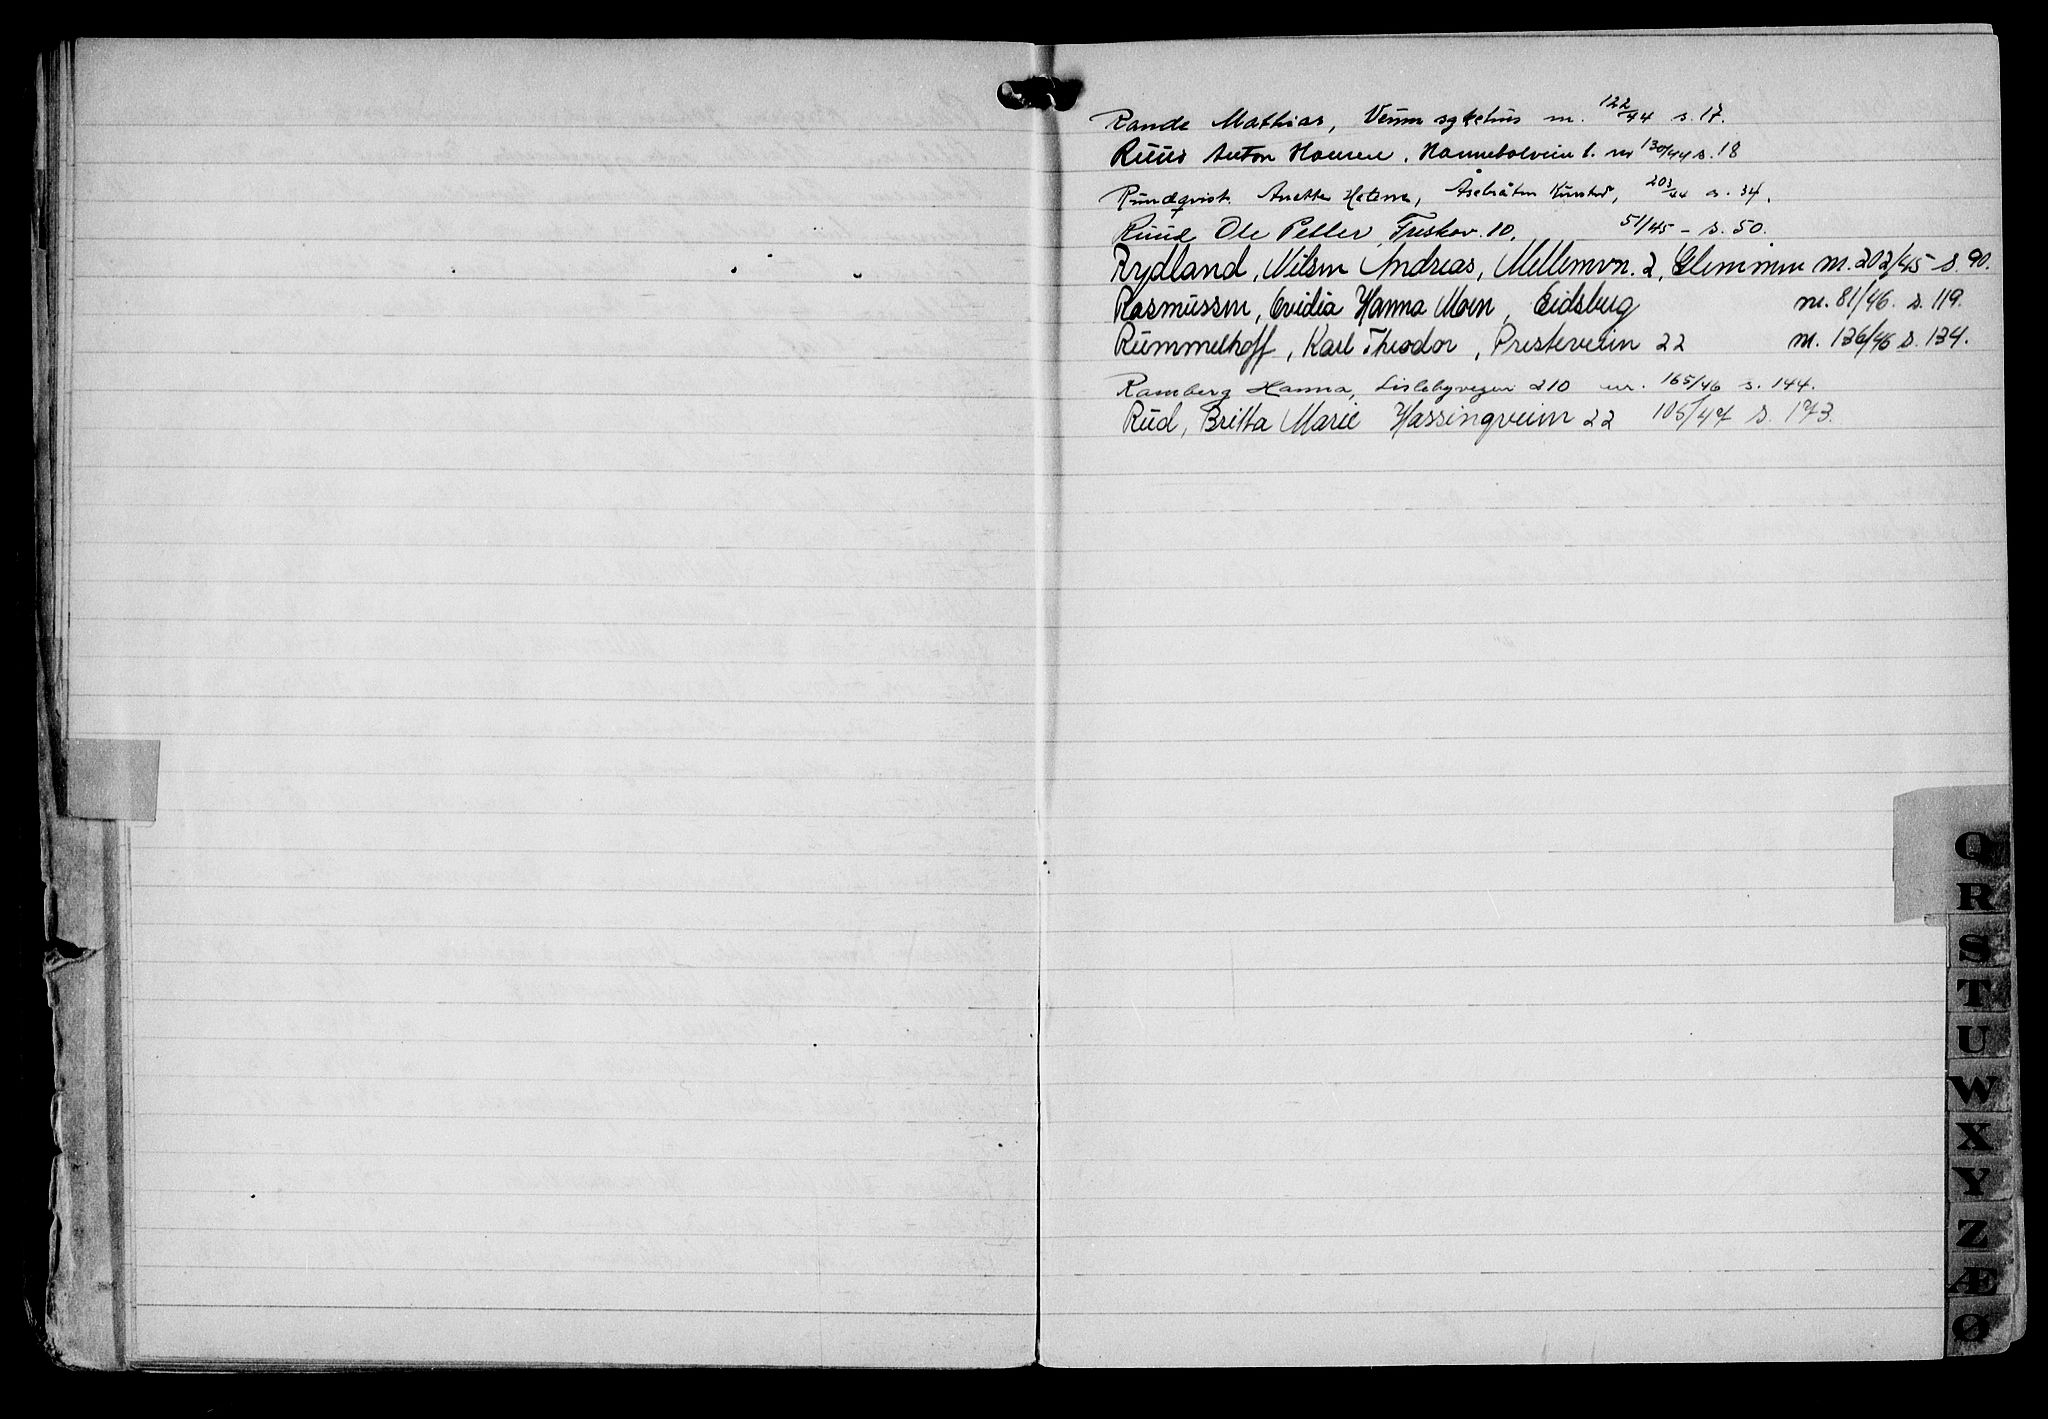 Rande Mathias, Veum sykehus nr. 122/44 s. 17.
Ruud Anton Hansen, Nannebolveien 6. nr 130/44 s. 18
Rundqvist Anette Helene, Åsebråten 203/44 s. 34.
Ruud Ole Petter, Treskov. 10, 51/45 - s. 50.
Rydland, Nilsen Andreas, Mellemvn. 2, Glemmen nr. 202/45 s. 90.
Rasmussen, Evidia Hanna Moen, Eidsberg nr. 81/46. s. 119.
Rummelhoff, Karl Theodor, Presteveien 22 nr. 136/46 s. 134.
Ramberg Hanna, Lislebyvegen 210 nr. 165/46 s. 144.
Rud, Britta Marie Hassingveien 22 105/47 s. 173.
Q
R
S
T
U
W
X
Y
Z
Æ
Ø